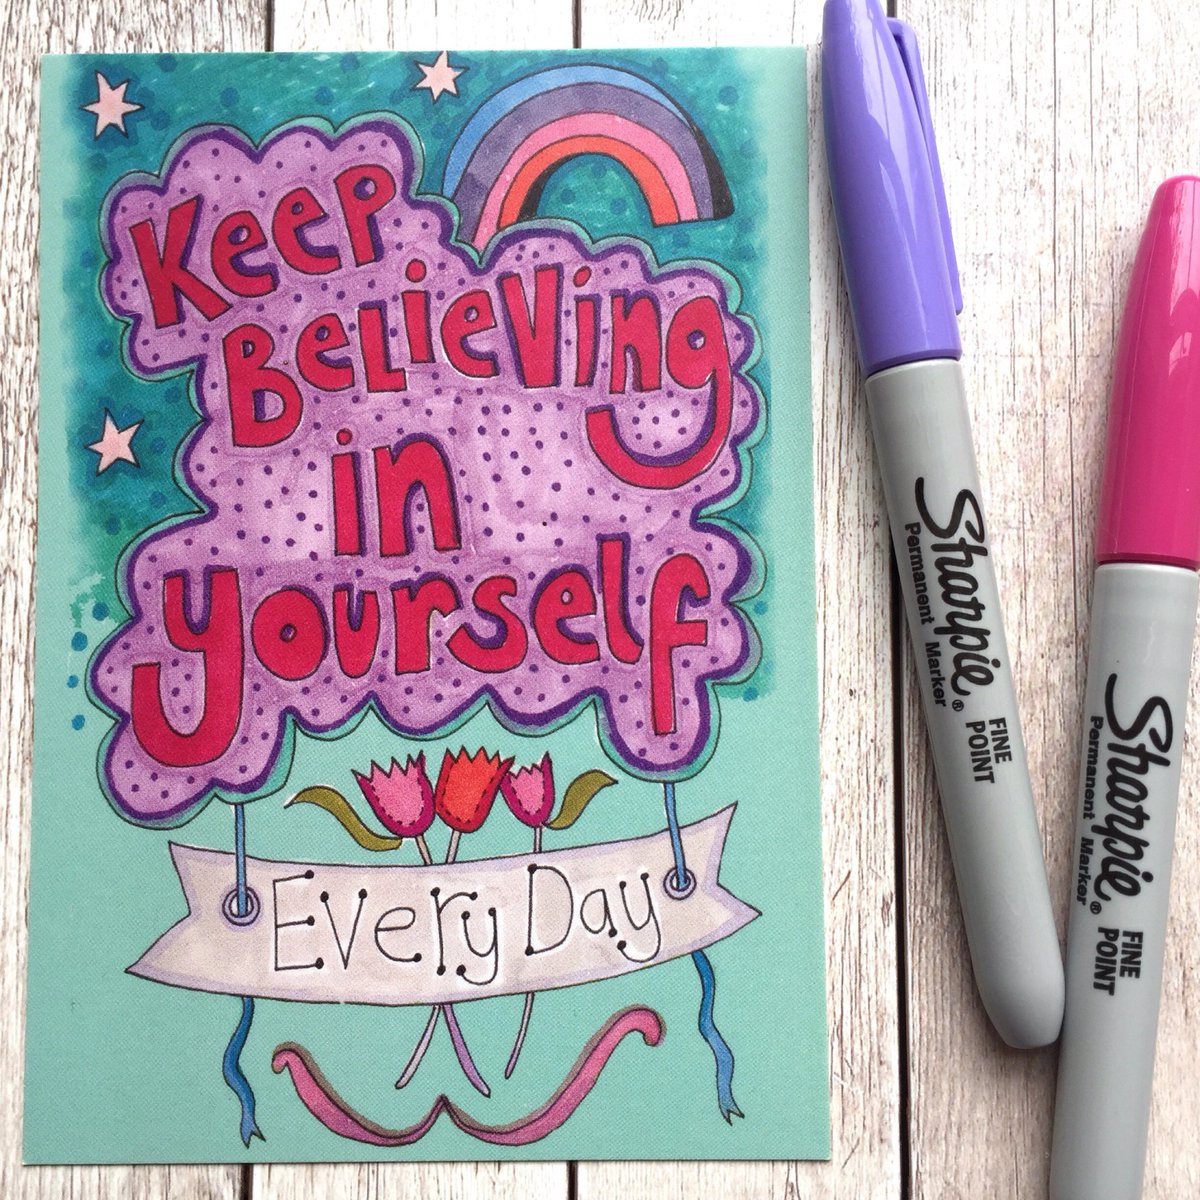 Keep
Believing
in
yourself
Every Day
Sharpie®
Permanent Marker
FINE
POINT
Sharpie®
Permanent Marker
FINE
POINT